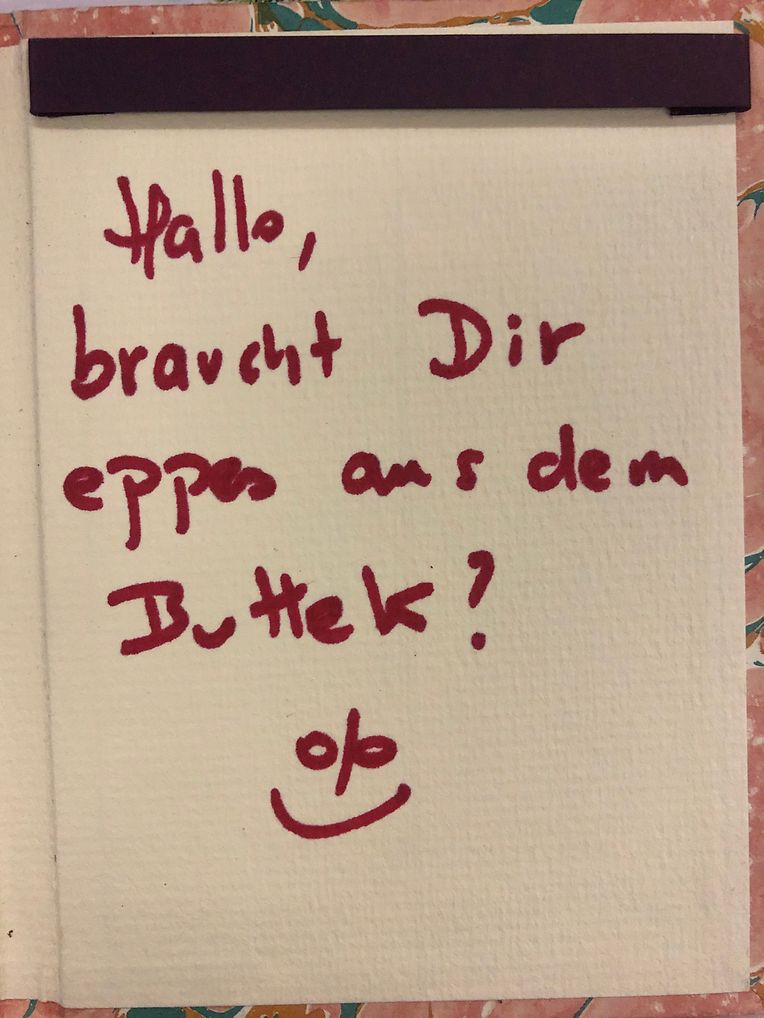 Hallo,
braucht Dir
eppes aus dem
Buttek?